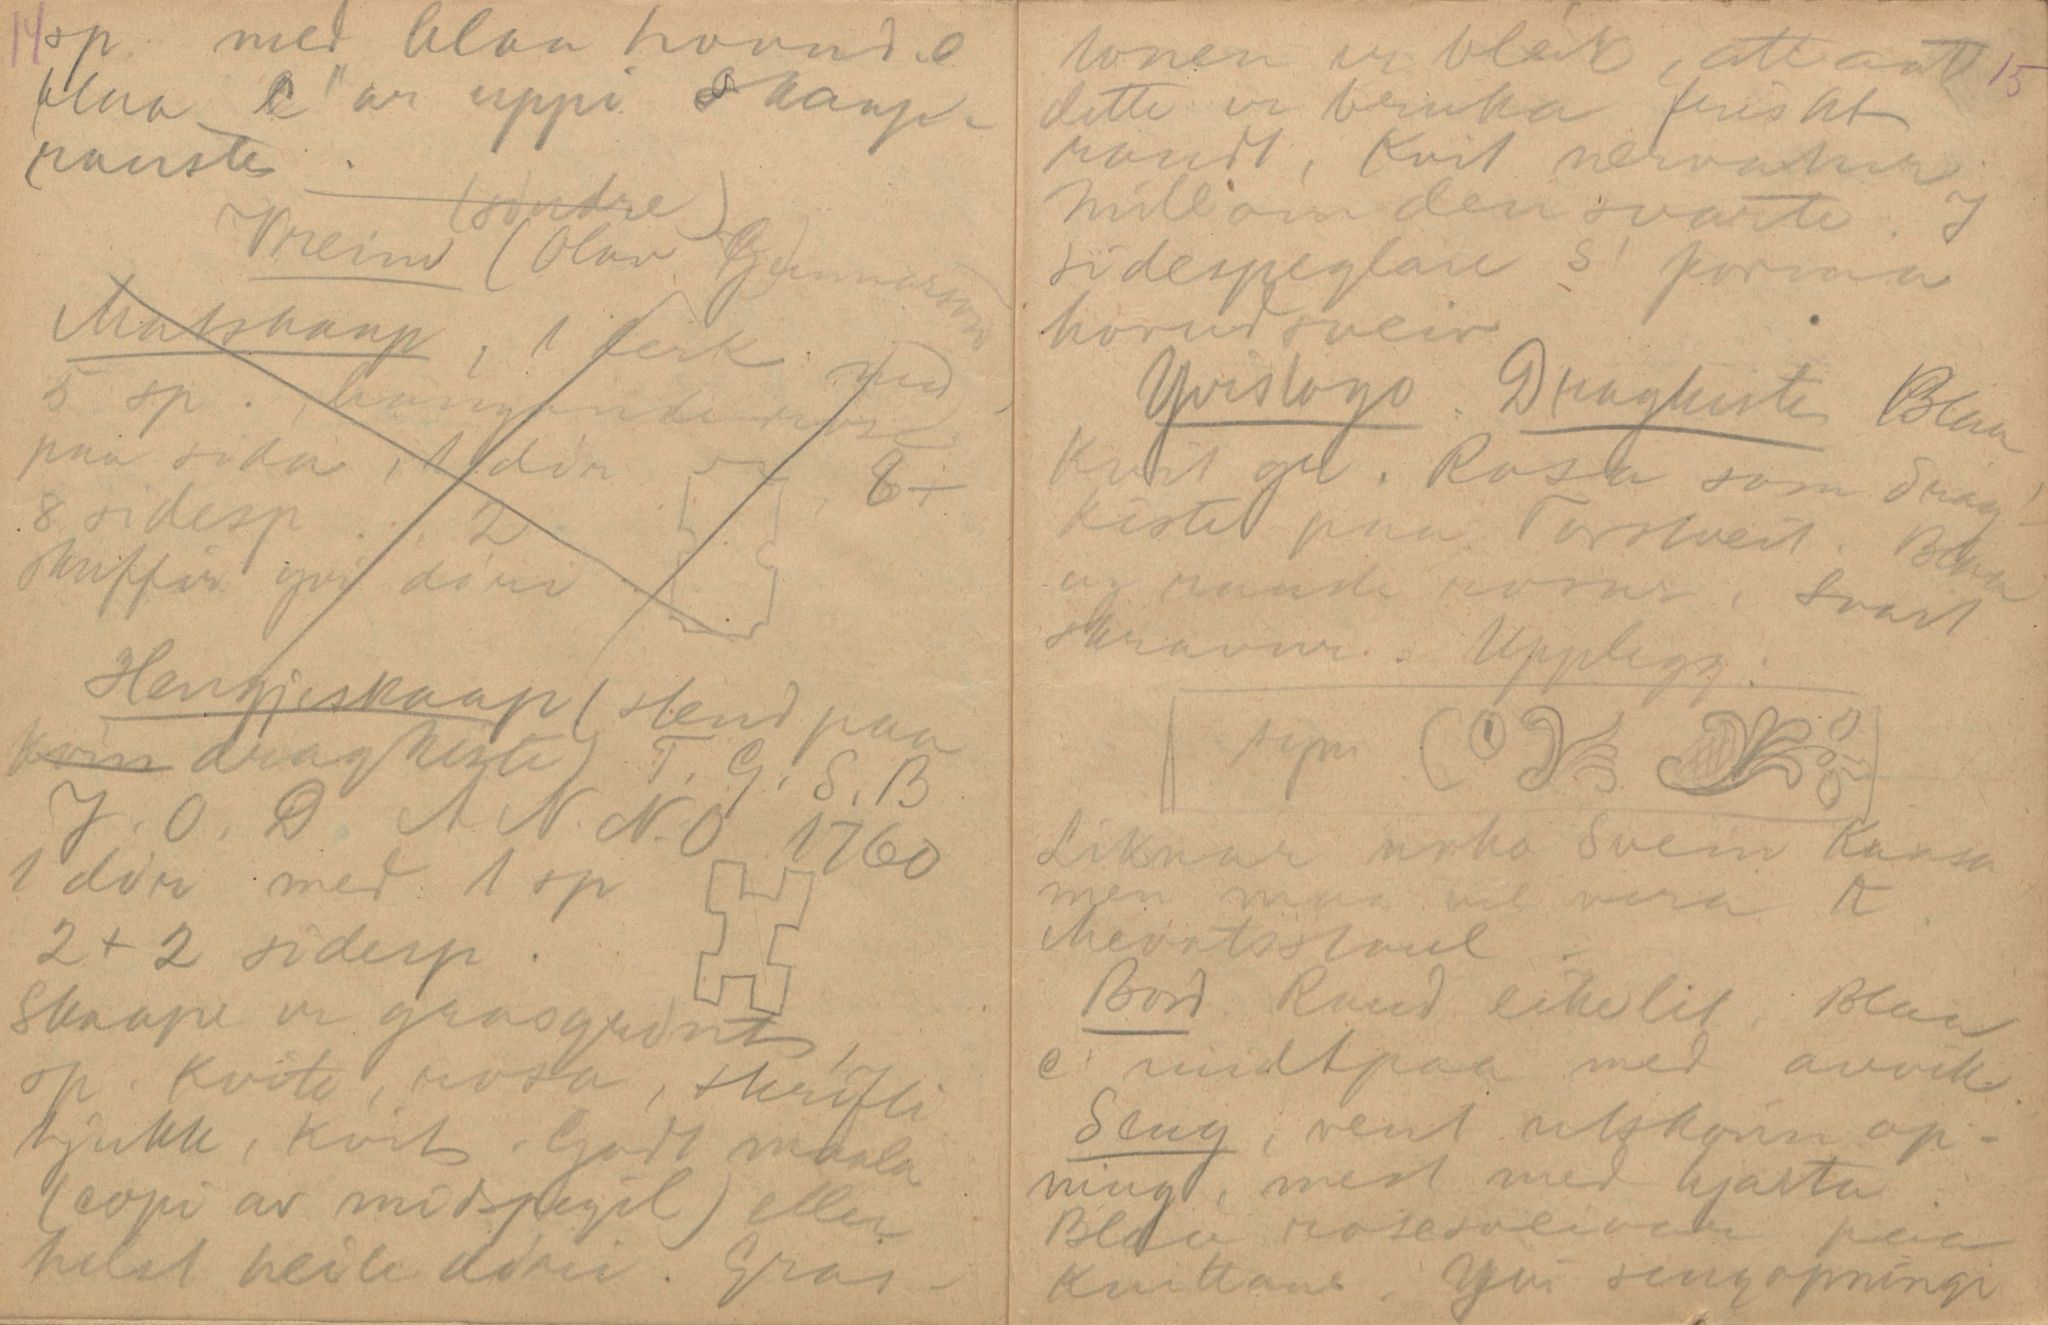 14
sp. med blaa hovud. C
blaa C" ar uppi Skaap-
rauste.
(söndre)
Vreim (Olav Gunnarson
Matskaap, 1 ferk. med
5 sp., hangande rose
paa sida, 1 dör, 8+
8 sidesp. . 2
skuffur yvi döri.
Hengjeskaap (stend paa
kvin dragkiste) T. G. S. B
J. O. D. A N. N. O 1760
1 dör med 1 sp
2 + 2 sidesp.
Skaape er grasgrönt,
sp. kvite, rosa, skrifti
tjukk, kvit. Godt maala
(copi av midspegil) eller
helst heile döri. Gras-
15
tonen er bleik, att aat
dette er bruka friskt
raudt, Kvit nervatur
millom den svarte. I
sidespeglane S' forma
hovudsveiv
Yvistogo. Dragkiste Blaa
Kvit gr. Rosa som drag-
kiste paa Torstveit. Blaa
og raude rosur, svart
skravur. Upplegg.
sym
Liknar noko Svein Kaasa
men maa vel vera K
Mevatsstaul.
Bord. Raud eikelit. Blaa
C' midtpaa med avvik.
Seng, vent utskorin op-
ning, mest med hjarta.
Blaa rosesveivar paa
kvittane. Yvi sengopningi